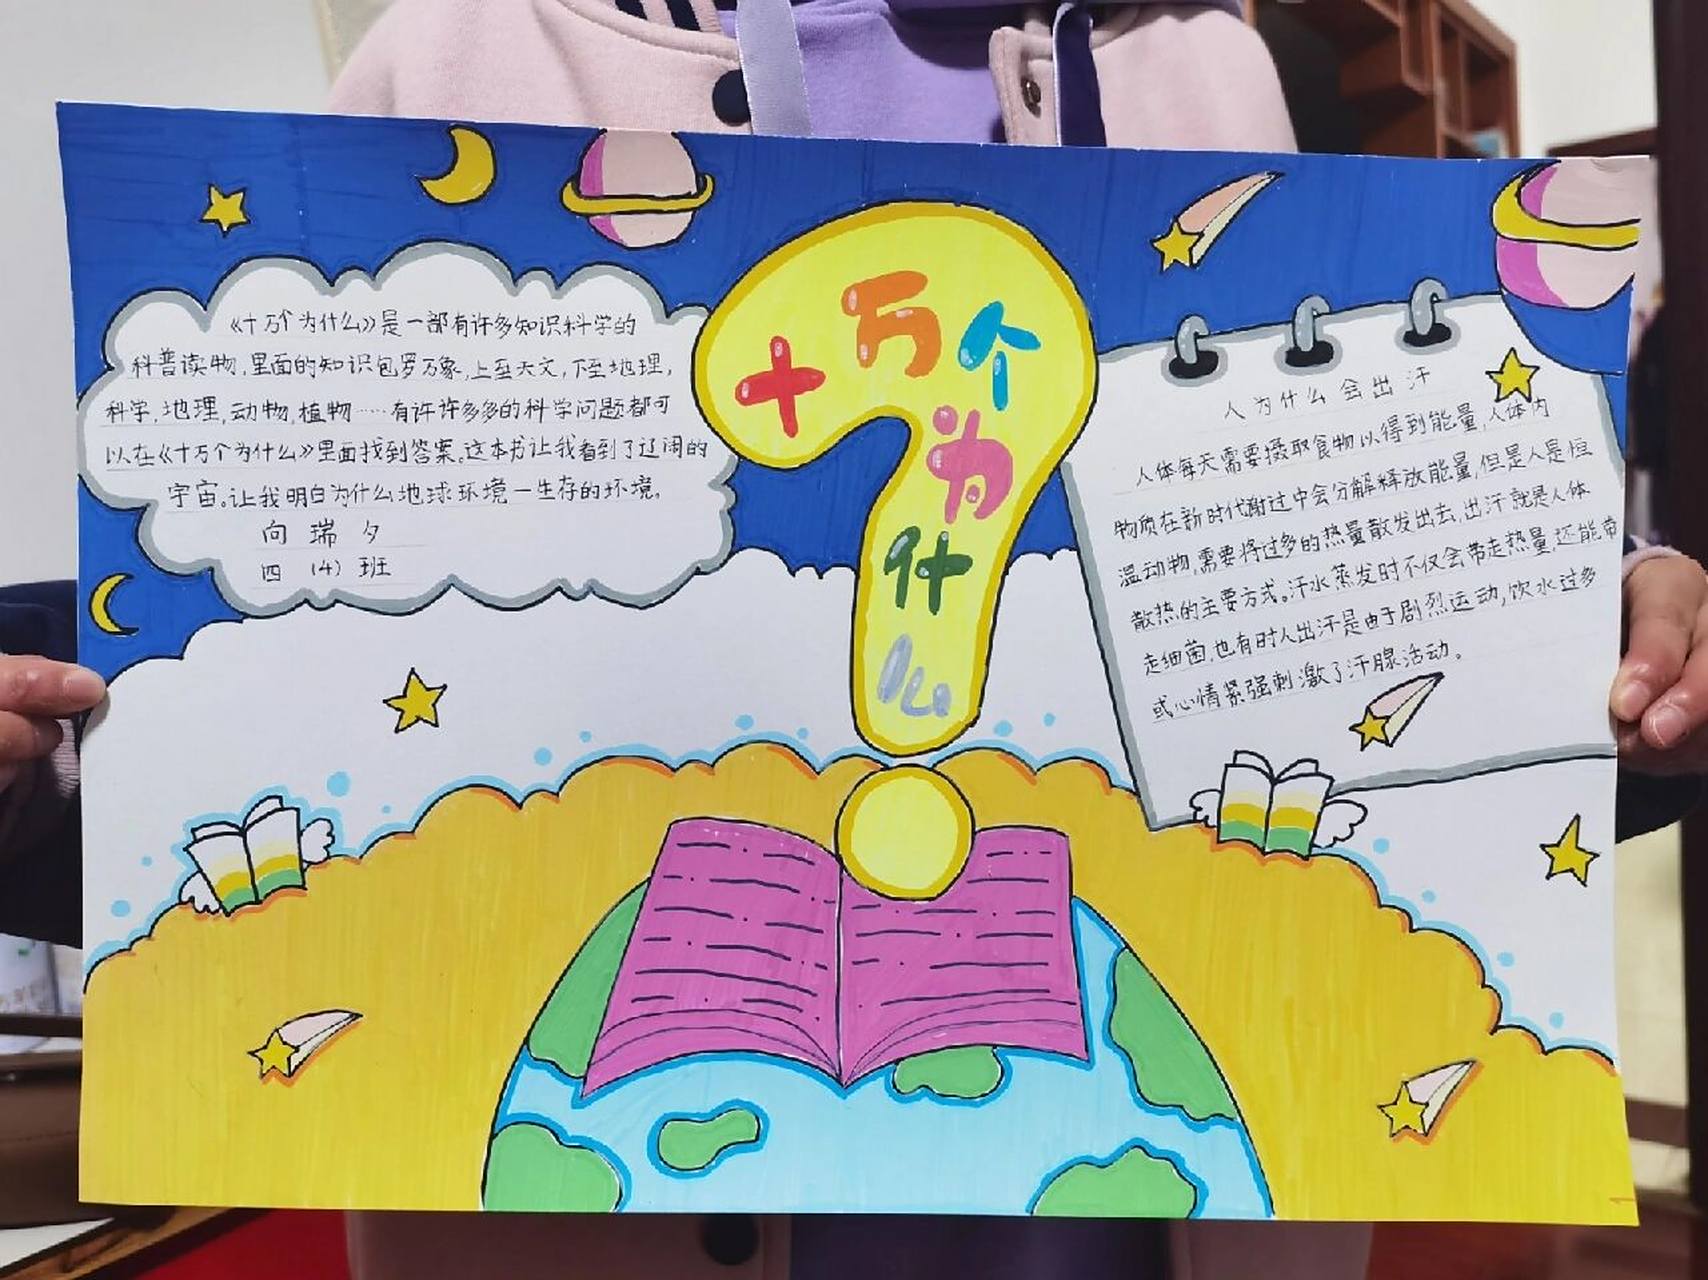 十万个为什么
《十万个为什么》是一部有许多知识科学的
科普读物,里面的知识包罗万象,上至天文,下至地理,
科学,地理,动物,植物……有许许多多的科学问题都可
以在《十万个为什么》里面找到答案。这本书让我看到了辽阔的
宇宙。让我明白为什么地球环境一生存的环境。
向瑞夕
四(4)班
人为什么会出汗
人体每天需要摄取食物以得到能量,人体内
物质在新时代谢过中会分解释放能量,但是人是恒
温动物,需要将过多的热量散发出去,出汗就是人体
散热的主要方式。汗水蒸发时不仅会带走热量,还能带
走细菌,也有时人出汗是由于剧烈运动,饮水过多
或心情紧强刺激了汗腺活动。